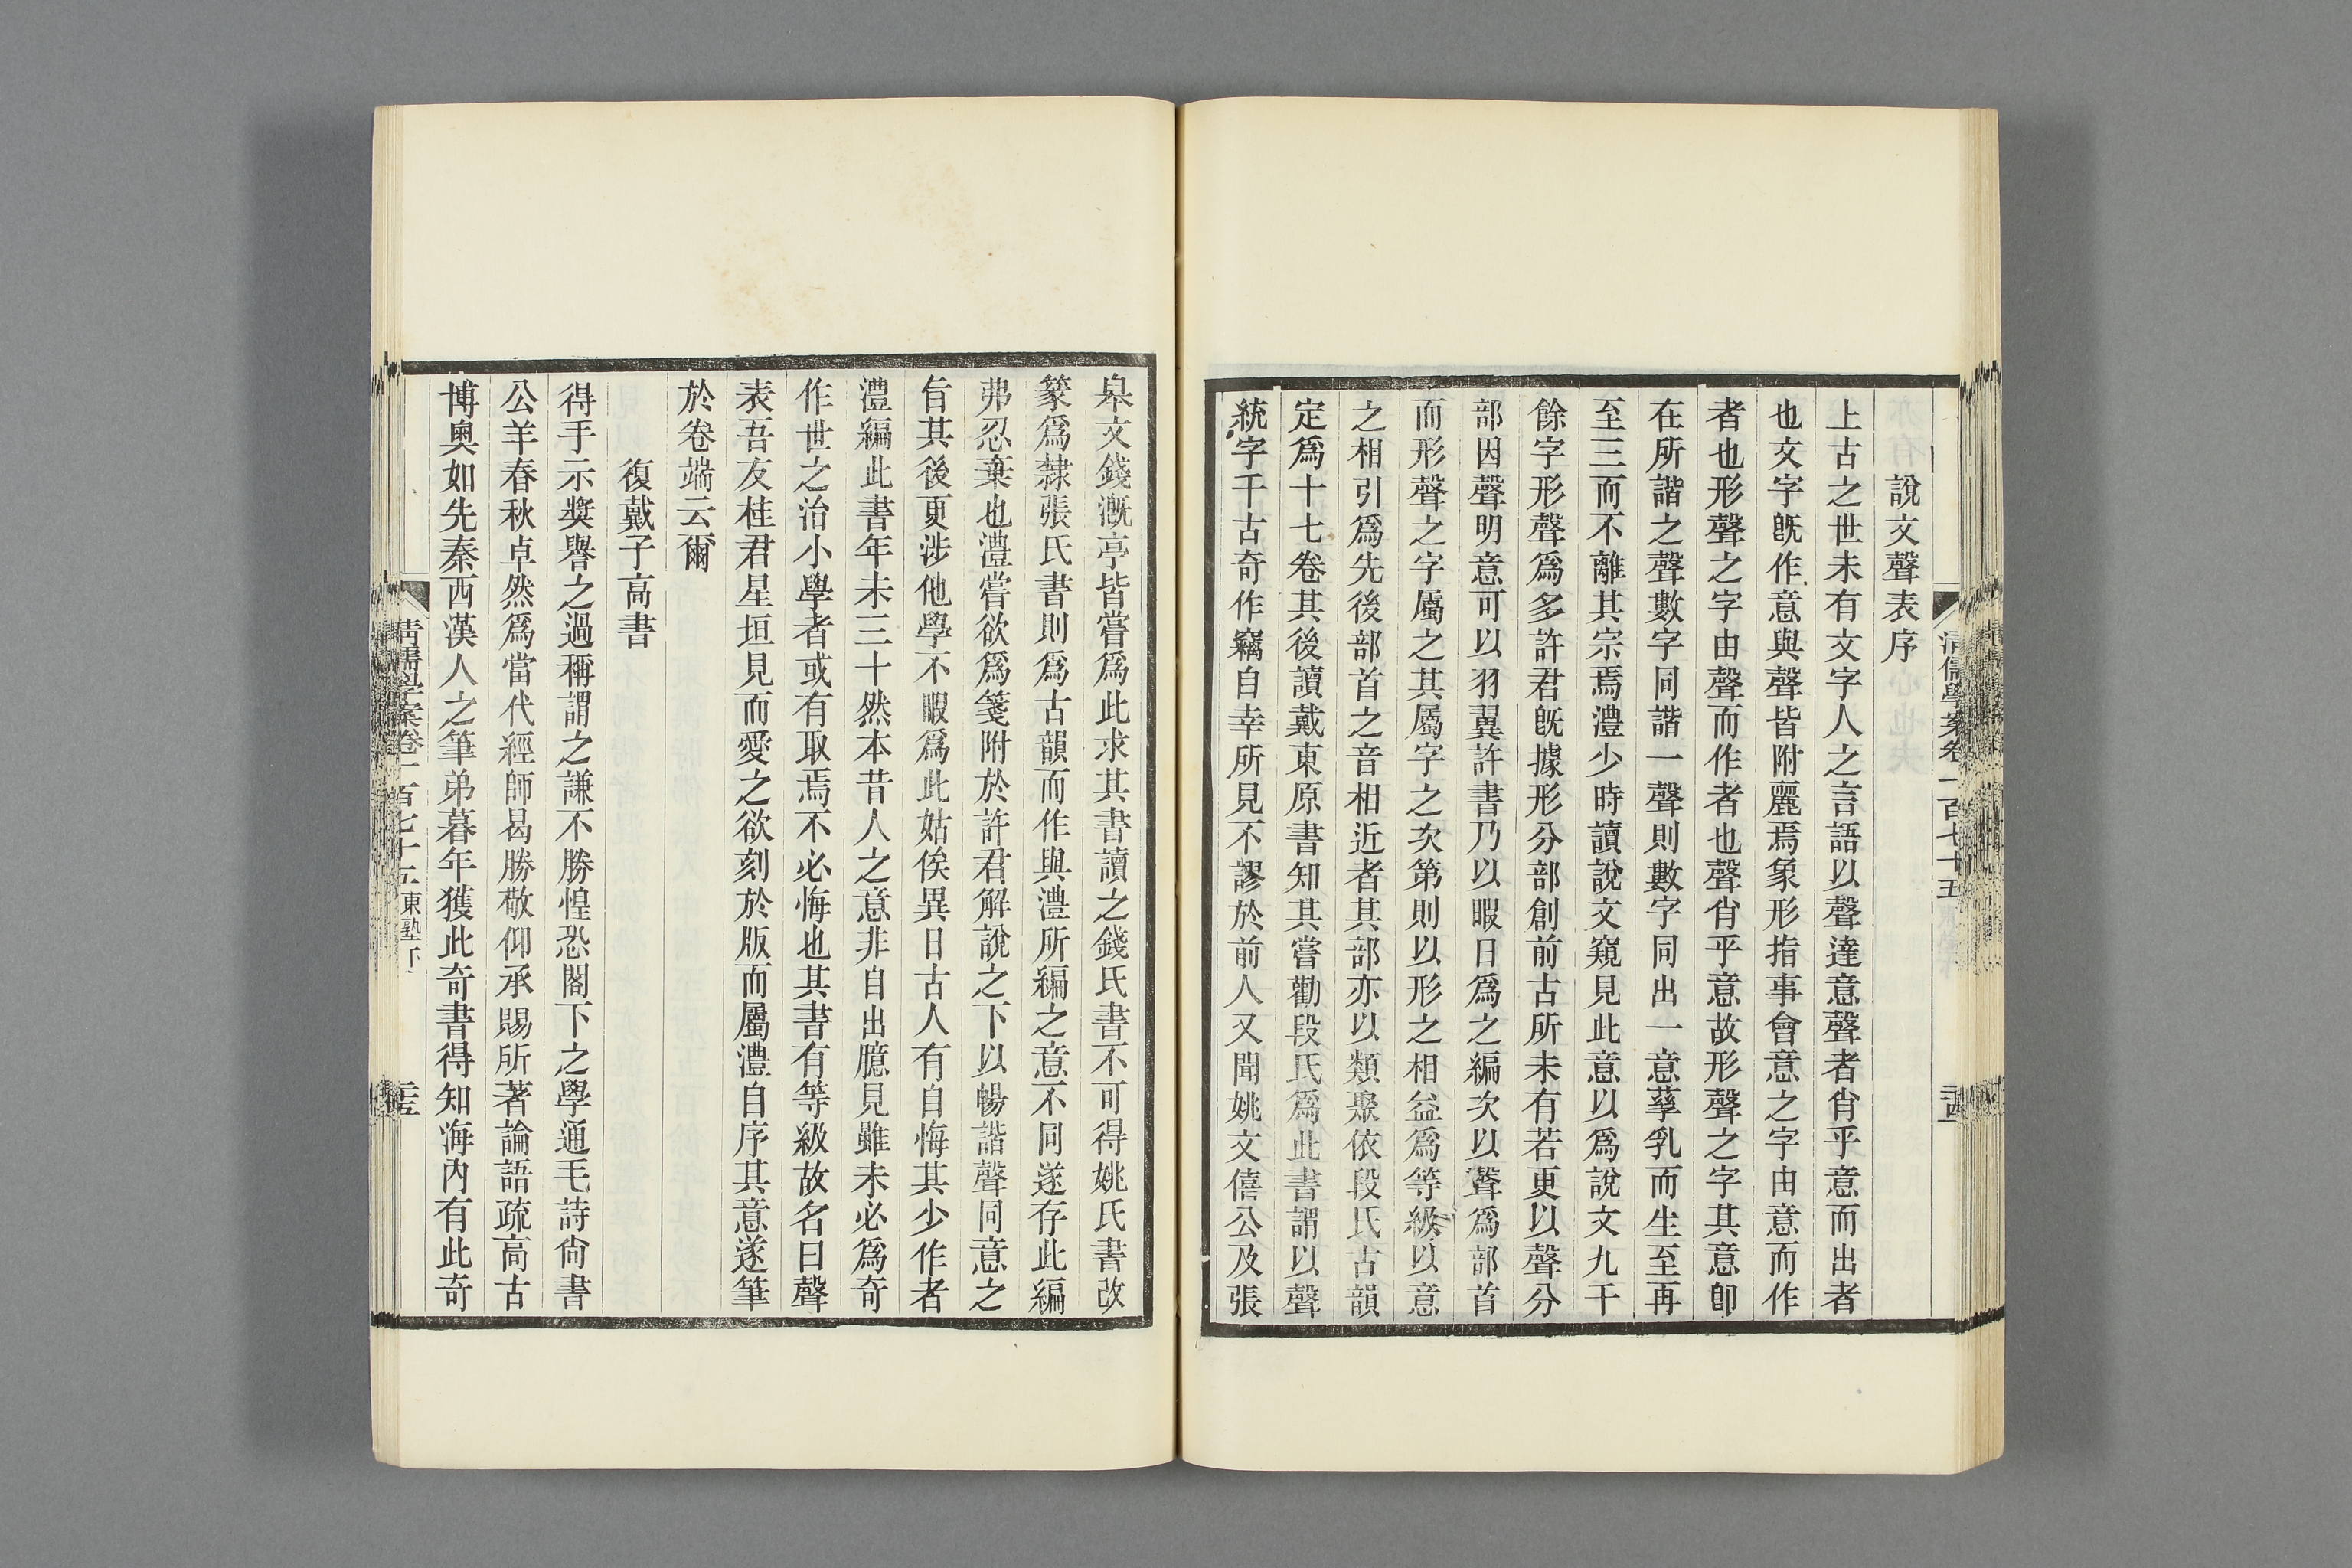 說文聲表序
上古之世未有文字人之言語以聲達意聲者肖乎意而出者
也文字旣作意與聲皆附麗焉象形指事會意之字由意而作
者也形聲之字由聲而作者也聲肖乎意故形聲之字其意卽
在所諧之聲數字同諧一聲則數字同出一意孳乳而生至再
至三而不離其宗焉澧少時讀說文窺見此意以爲說文九千
餘字形聲爲多許君旣據形分部創前古所未有若更以聲分
部因聲明意可以羽翼許書乃以暇日爲之編次以聲爲部首
而形聲之字屬之其屬字之次第則以形之相益爲等級以意
之相引爲先後部首之音相近者其部亦以類聚依段氏古韻
定爲十七卷其後讀戴東原書知其嘗勸段氏爲此書謂以聲
統字千古奇作竊自幸所見不謬於前人又聞姚文僖公及張
皋文錢漑亭皆嘗爲此求其書讀之錢氏書不可得姚氏書改
篆爲隸張氏書則爲古韻而作與澧所編之意不同遂存此編
弗忍棄也澧嘗欲爲箋附於許君解說之下以暢諧聲同意之
旨其後更涉他學不暇爲此姑俟異日古人有自悔其少作者
澧編此書年未三十然本昔人之意非自出臆見雖未必爲奇
作世之治小學者或有取焉不必悔也其書有等級故名曰聲
表吾友桂君星垣見而愛之欲刻於版而屬澧自序其意遂筆
於卷端云爾
復戴子高書
得手示獎譽之過稱謂之謙不勝惶恐閣下之學通毛詩尙書
公羊春秋卓然爲當代經師曷勝敬仰承賜所著論語疏高古
博奧如先秦西漢人之筆弟暮年獲此奇書得知海內有此奇
清儒學案卷一百七十五 東塾下 二十五
清儒學案卷一百七十五 二十四